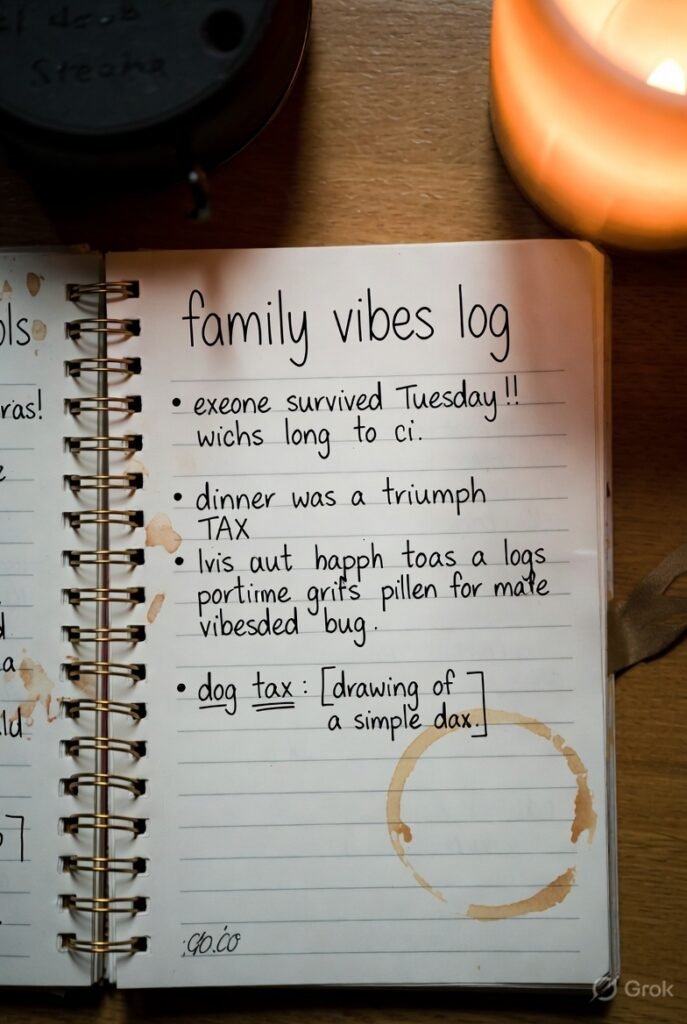 Steama
family vibes log
ols
ras!
• exeone survived Tuesday!!
wichs long to ci.
• dinner was a triumph
TAX
• lvis aut happh toas a logs
portirme grifs pillen for mate
vibesded bug.
d
a
ld
• dog tax: [drawing of
a simple dax.]
Grok